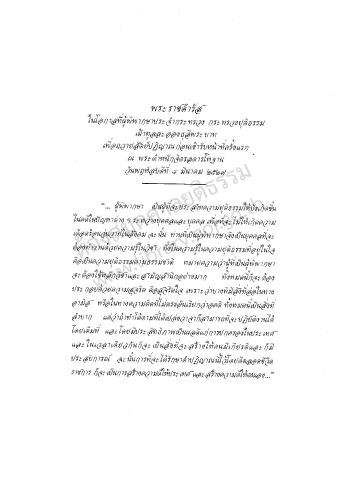 พระราชดำรัส
ในโอกาสที่ผู้พิพากษาประจำกระทรวง กระทรวงยุติธรรม
เฝ้าทูลละอองธุลีพระบาท
เพื่อถวายสัตย์ปฏิญาณก่อนเข้ารับหน้าที่ครั้งแรก
ณ พระตำหนักจิตรลดารโหฐาน
วันพฤหัสบดีที่ ๘ มีนาคม ๒๕๒๗
"... ผู้พิพากษา เป็นผู้ที่จะประสาทความยุติธรรมให้บังเกิดขึ้น
ในคดีในปัญหาต่าง ๆ ระหว่างบุคคลและบุคคล เพื่อที่จะไม่ให้เกิดความ
เดือดร้อนวุ่นวายในสังคม ฉะนั้น ท่านที่เป็นผู้พิพากษาจึงเป็นบุคคลที่จะ
ต้องทำงานด้วยความรู้ในวิชา ทั้งในความรู้ในความยุติธรรมที่อยู่ในใจ
คือเป็นความยุติธรรมตามธรรมชาติ หมายความว่าผู้ที่เป็นผู้พิพากษา
จะต้องใช้หลักวิชาและสามัญสำนึกอย่างมาก ทั้งหมดนี้ก็จะต้อง
ประกอบด้วยความสุจริต คือสุจริตใจ เพราะว่าบางทีมีสิ่งที่ล่อใจในทาง
อามิส หรือในทางความคิดที่ไม่ตรงอันเรียกว่าอคติ ทั้งหมดนี้เป็นสิ่งที่
ลำบาก แต่ว่าถ้าทำได้ตามที่ได้เปล่งวาจาก็สามารถที่จะปฏิบัติงานได้
โดยเต็มที่ และโดยมีประสิทธิภาพเป็นผลดีแก่การปกครองในประเทศ
และในเวลาเดียวกันก็จะเป็นสิ่งที่จะสร้างให้ตนมีเกียรติและก็มี
ประสบการณ์ ฉะนั้นการที่จะได้รักษาคำปฏิญาณนี้ไว้โดยตลอดชีวิต
ราชการ ก็จะเป็นการสร้างความดีให้ประเทศและสร้างความดีให้ตนเอง..."